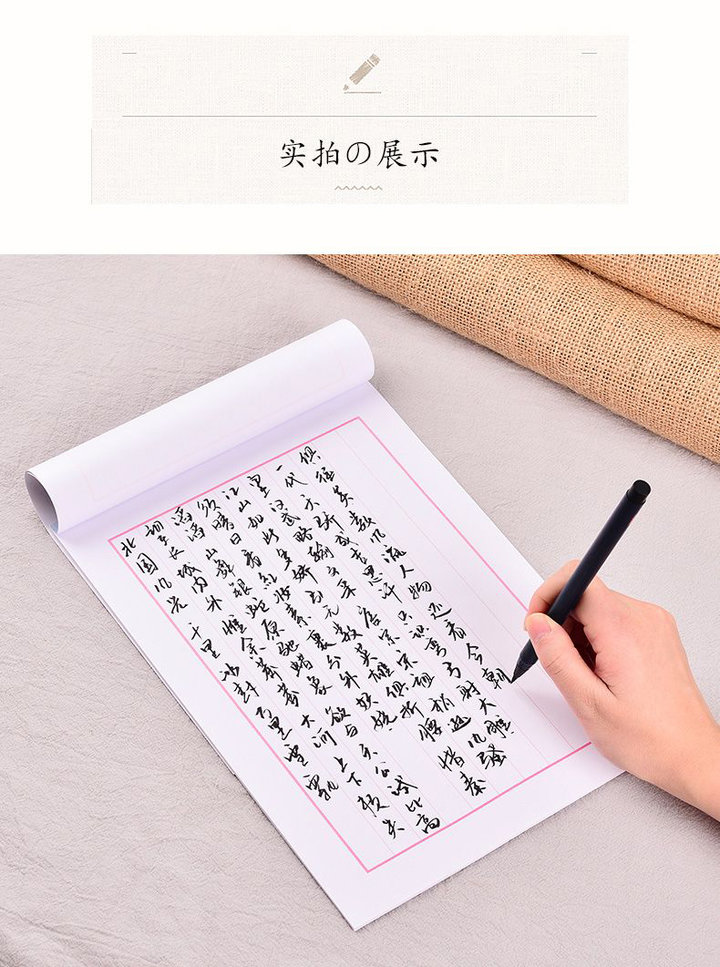 实拍の展示
北国风光千里冰封万里雪飘
望长城内外惟余莽莽大河上下顿失
滔滔山舞银蛇原驰蜡象欲与天公试比高
须晴日看红妆素裹分外妖娆
江山如此多娇引无数英雄竞折腰惜秦
皇汉武略输文采唐宗宋祖稍逊风骚
一代天骄成吉思汗只识弯弓射大雕
俱往矣数风流人物还看今朝